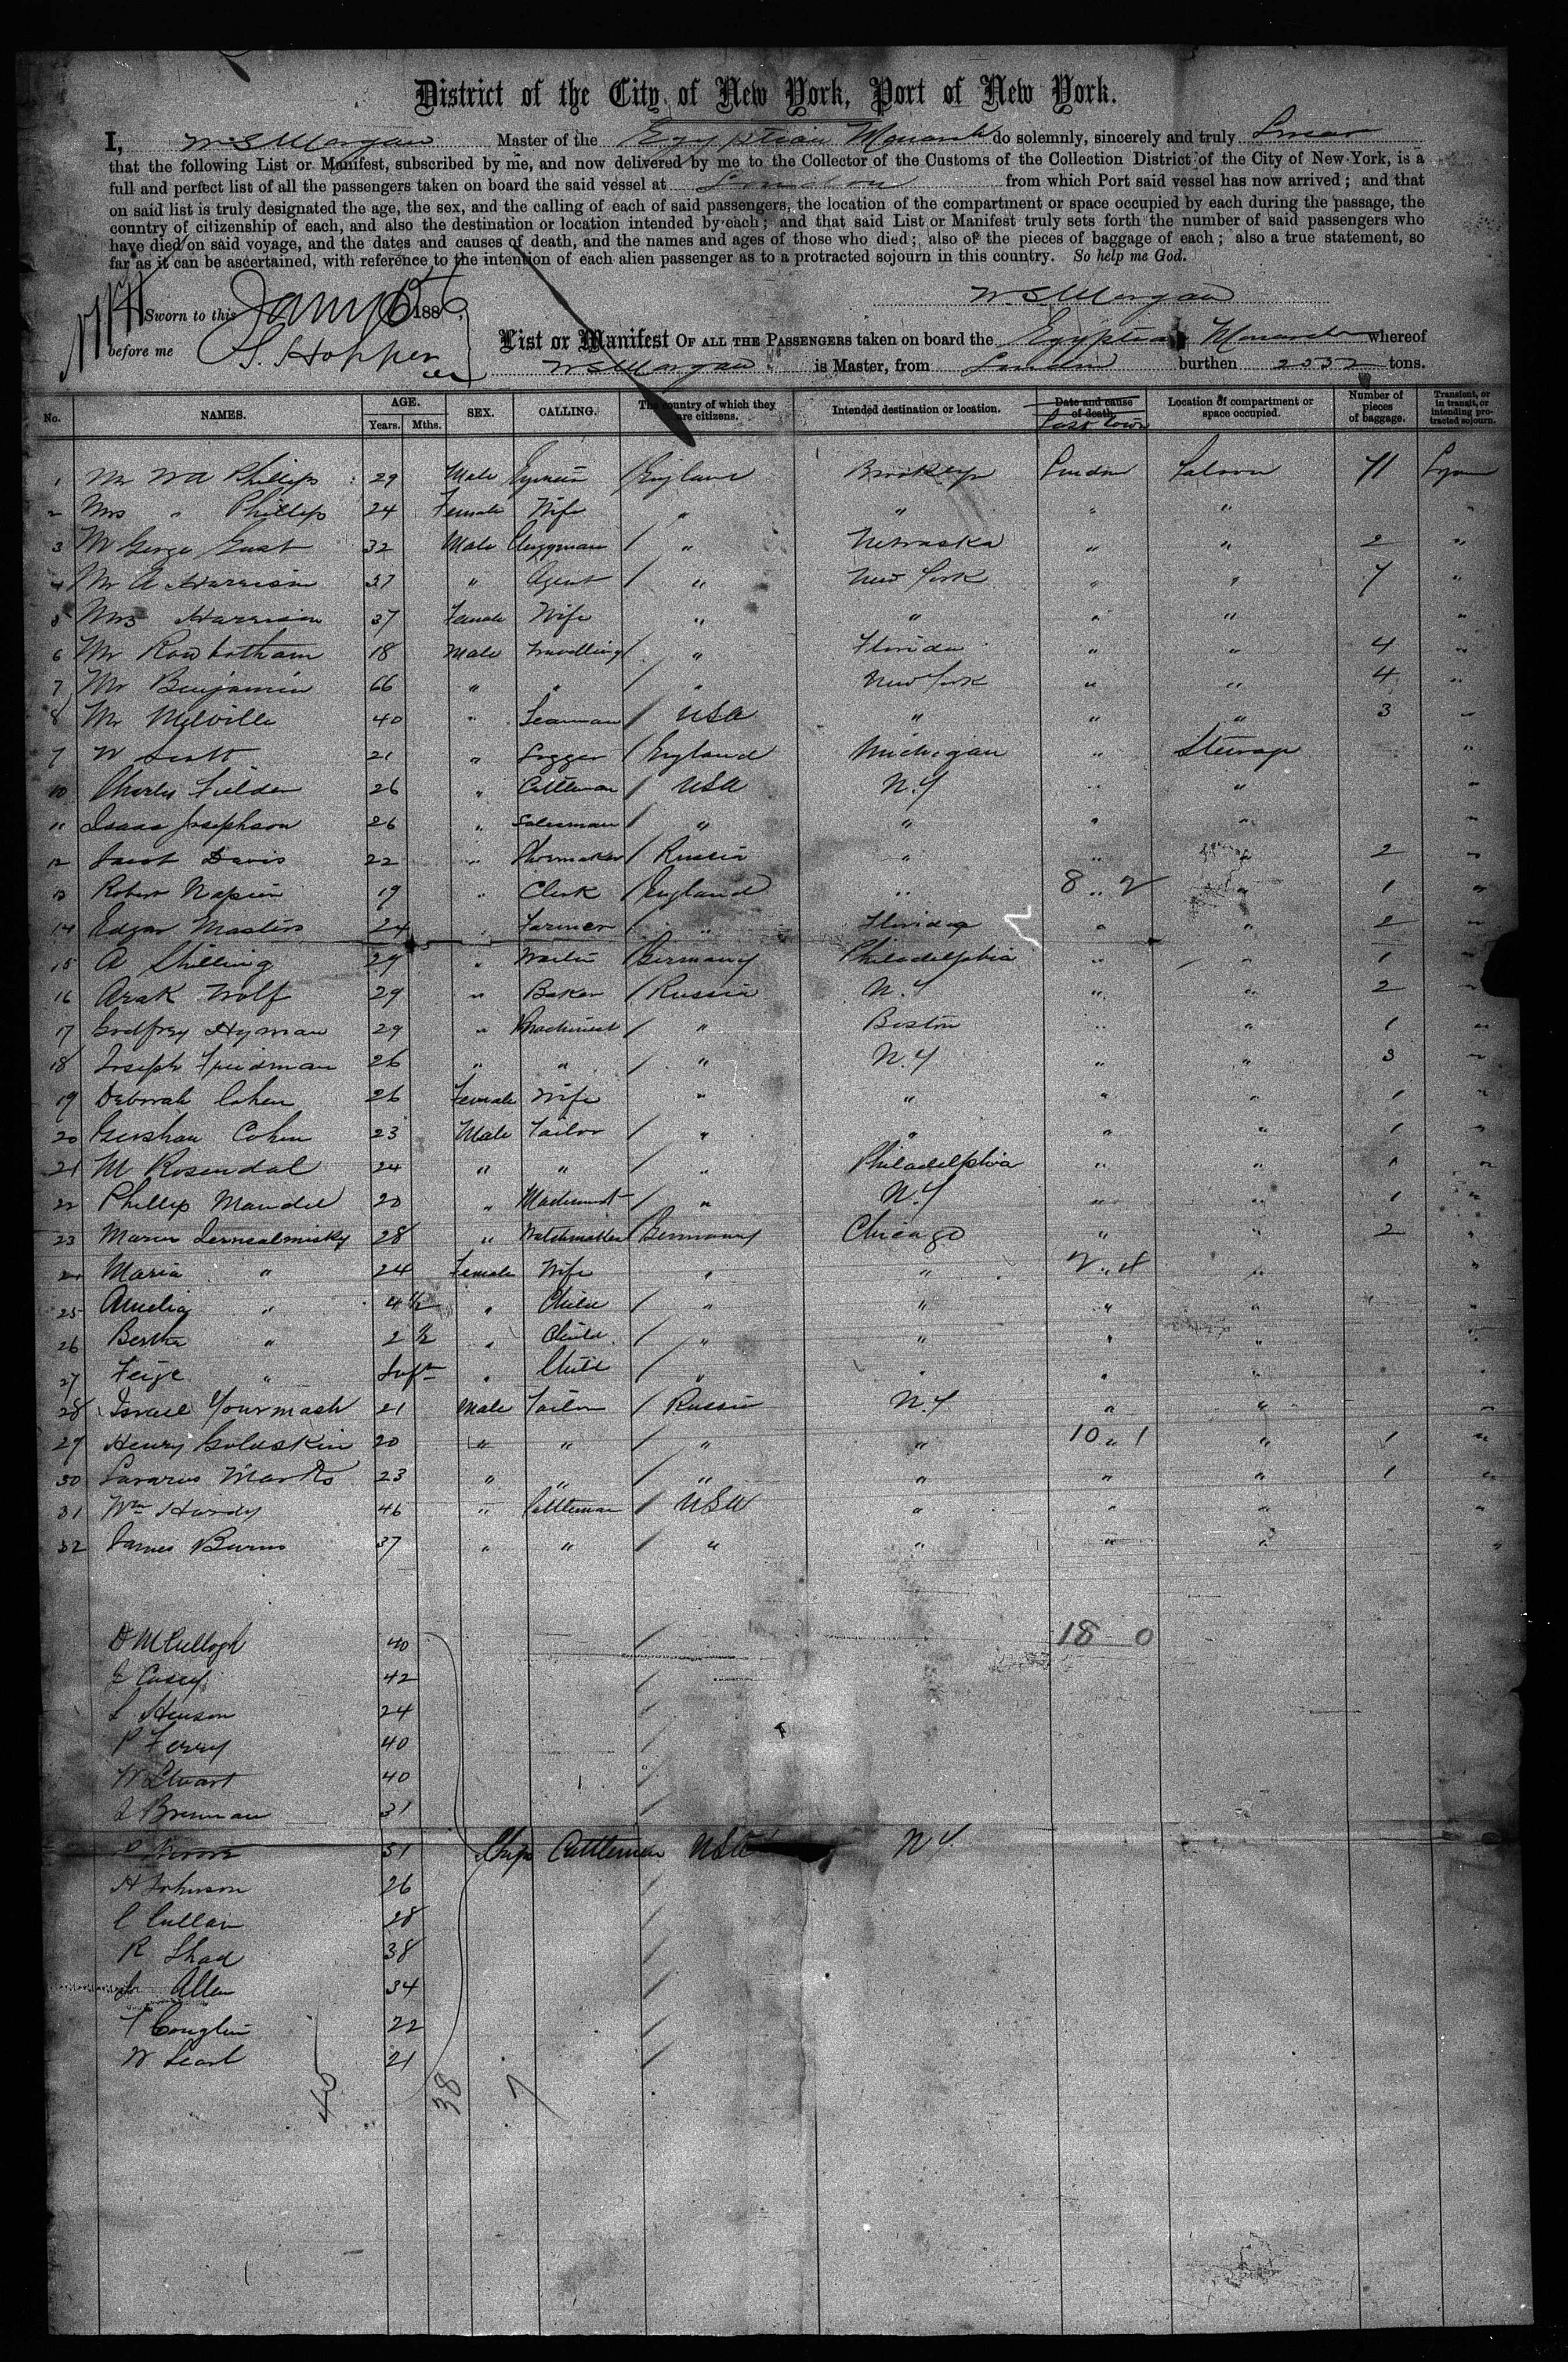 District of the City of New York, Port of New York.
I, W S Morgan Master of the Egyptian Monarch do solemnly, sincerely and truly Swear
that the following List or Manifest, subscribed by me, and now delivered by me to the Collector of the Customs of the Collection District of the City of New York, is a
full and perfect list of all the passengers taken on board the said vessel at London from which Port said vessel has now arrived; and that
on said list is truly designated the age, the sex, and the calling of each of said passengers, the location of the compartment or space occupied by each during the passage, the
country of citizenship of each, and also the destination or location intended by each; and that said List or Manifest truly sets forth the number of said passengers who
have died on said voyage, and the dates and causes of death, and the names and ages of those who died; also of the pieces of baggage of each; also a true statement, so
far as it can be ascertained, with reference to the intention of each alien passenger as to a protracted sojourn in this country. So help me God.
W. S. Morgan
Sworn to this 1886
before me S. Hopper
List or Manifest OF ALL THE PASSENGERS taken on board the Egyptian Monarch whereof
W S Morgan is Master, from London burthen tons.
No. NAMES. AGE. Years. Mths. SEX. CALLING. The country of which they are citizens. Intended destination or location. Date and cause of death. Last town Location of compartment or space occupied. Number of pieces of baggage. Transient, or in transit, or intending protracted sojourn.
1 Mr W A Phillips 29 Male England Brooklyn London Saloon 11
2 Mrs " Phillips 24 Female Wife " " " "
3 Mr George East 32 Male Clergyman " Nebraska " " 2 "
4 Mr A Harrison 37 " Agent " New York " " 7 "
5 Mrs Harrison 37 Female Wife " " " " "
6 Mr Rowbotham 18 Male Travelling " Florida " " 4 "
7 Mr Benjamin 66 " " " New York " " 4 "
8 Mr Melville 40 " Seaman USA " " " 3 "
9 W Scott 21 " Logger England Michigan " Steerage "
10 Charles Fielder 26 " Cattleman USA N.Y " " "
11 Isaac Josephson 26 " Salesman " " " " "
12 Jacob Davis 22 " Shoemaker Russia " " 2 "
13 Robert Napier 19 " Clerk England " 8 " 2 " 1 "
14 Edgar Masters 24 " Farmer " Florida " " 2 "
15 A Shilling 29 " Waiter Germany Philadelphia " " 1 "
16 Arak Wolf 29 " Baker Russia N.Y " " 2 "
17 Godfrey Hyman 29 " Machinist " Boston " " 1 "
18 Joseph Friedman 26 " " " N.Y " " 3 "
19 Deborah Cohen 26 Female Wife " " " " 1 "
20 Gershan Cohen 23 Male Tailor " " " " 1 "
21 M Rosendal 24 " " " Philadelphia " " 1 "
22 Phillip Mandel 20 " Machinist " N.Y " " 1 "
23 28 " Watchmaker Germany Chicago " " 2 "
24 Maria " 24 Female Wife " " 2 " 4 " "
25 Amelia " 4 1/2 " Child " " " " "
26 Bertha " 2 1/2 " Child " " " " "
27 Feige " Inft " Child " " " " "
28 Israel Yourmash 21 Male Tailor Russia N.Y " " "
29 Henry Goldskin 20 " " " " 10 " 1 " 1 "
30 Lazarus Marks 23 " " " " " " 1 "
31 Wm Hardy 46 " Cattleman USA " " " "
32 James Burns 37 " " " " " " "
D McCullogh 40 18 0
J Casey 42
S Henson 24
P Ferry 40
W Stuart 40
J Brennan 31
P Moore 31 Ships Cattlemen USA N.Y.
H Johnson 26
C Cullan 28
R Shad 38
Allen 34
T Coughlin 22
W Searl 21
45 38 7